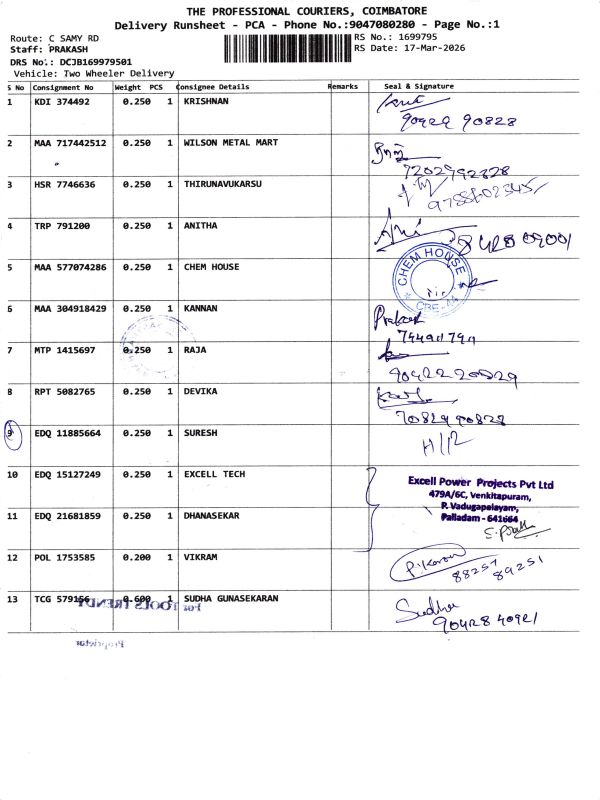 THE PROFESSIONAL COURIERS, COIMBATORE
Delivery Runsheet - PCA - Phone No.:9047080280 - Page No.:1
Route: C SAMY RD RS No.: 1699795
Staff: PRAKASH RS Date: 17-Mar-2026
DRS No.: DCJB169979501
Vehicle: Two Wheeler Delivery
S No Consignment No Weight PCS Consignee Details Remarks Seal & Signature
1 KDI 374492 0.250 1 KRISHNAN
90429 90828
2 MAA 717442512 0.250 1 WILSON METAL MART
7202992828
3 HSR 7746636 0.250 1 THIRUNAVUKARSU
4 TRP 791200 0.250 1 ANITHA
5 MAA 577074286 0.250 1 CHEM HOUSE
CHEM HOUSE
6 MAA 304918429 0.250 1 KANNAN
Prakash
7 MTP 1415697 0.250 1 RAJA
8 RPT 5082765 0.250 1 DEVIKA
7082990828
9 EDQ 11885664 0.250 1 SURESH
10 EDQ 15127249 0.250 1 EXCELL TECH
Excell Power Projects Pvt Ltd
479A/6C, Venkitapuram,
P. Vadugapalayam,
Palladam - 641664
11 EDQ 21681859 0.250 1 DHANASEKAR
12 POL 1753585 0.200 1 VIKRAM
P. Karan
88257 89251
13 TCG 579156 0.600 1 SUDHA GUNASEKARAN
For TOOLS TRENDY
Sudha
9042840921
Proprietor